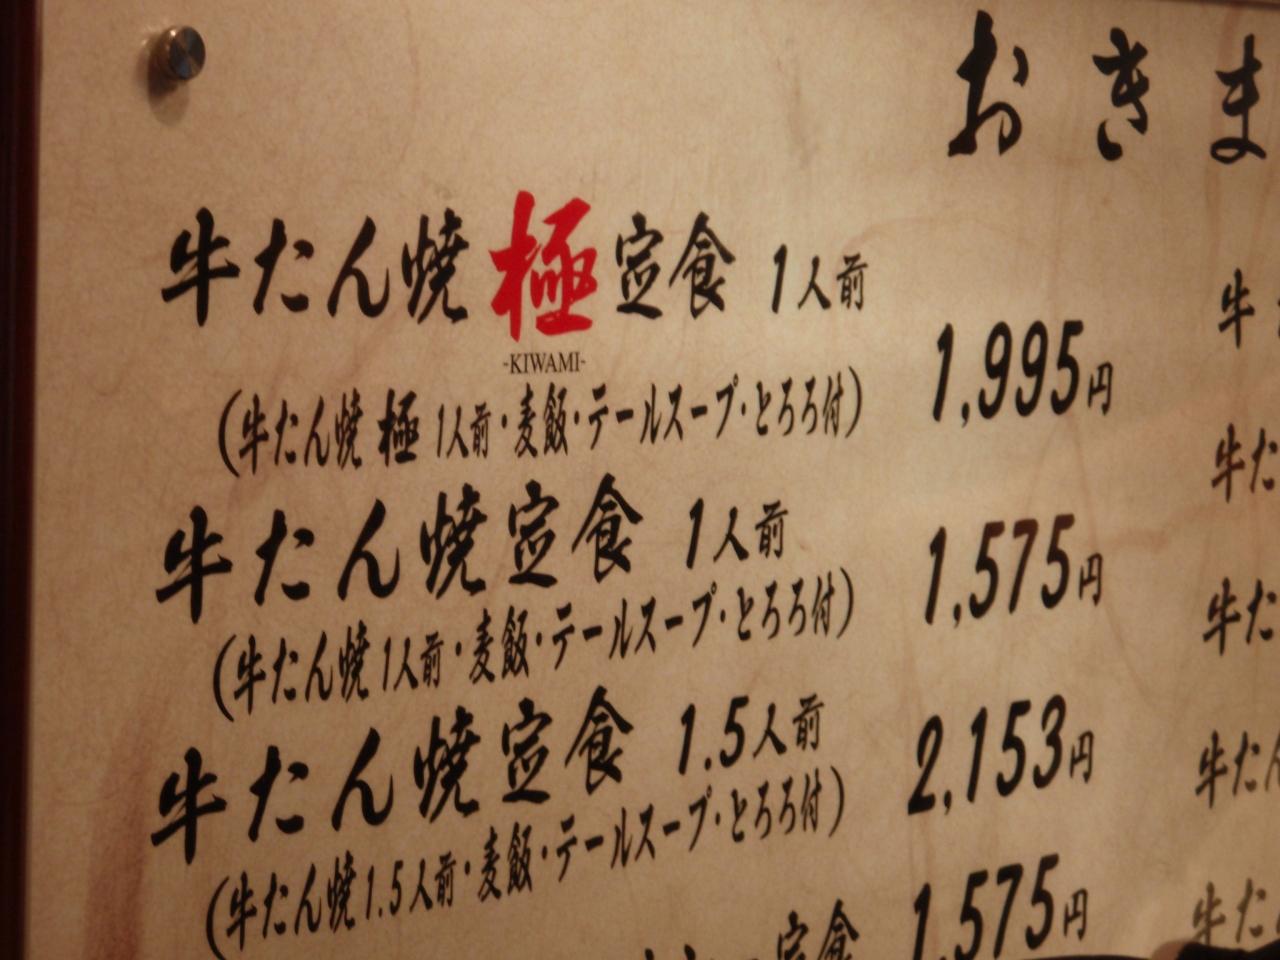 おきま
牛たん焼極定食 1人前
-KIWAMI-
1,995円
(牛たん焼 極 1人前・麦飯・テールスープ・とろろ付)
牛たん焼定食 1人前
1,575円
(牛たん焼 1人前・麦飯・テールスープ・とろろ付)
牛たん焼定食 1.5人前
2,153円
(牛たん焼 1.5人前・麦飯・テールスープ・とろろ付)
定食
1,575円
牛
牛た
牛た
牛たん
牛た